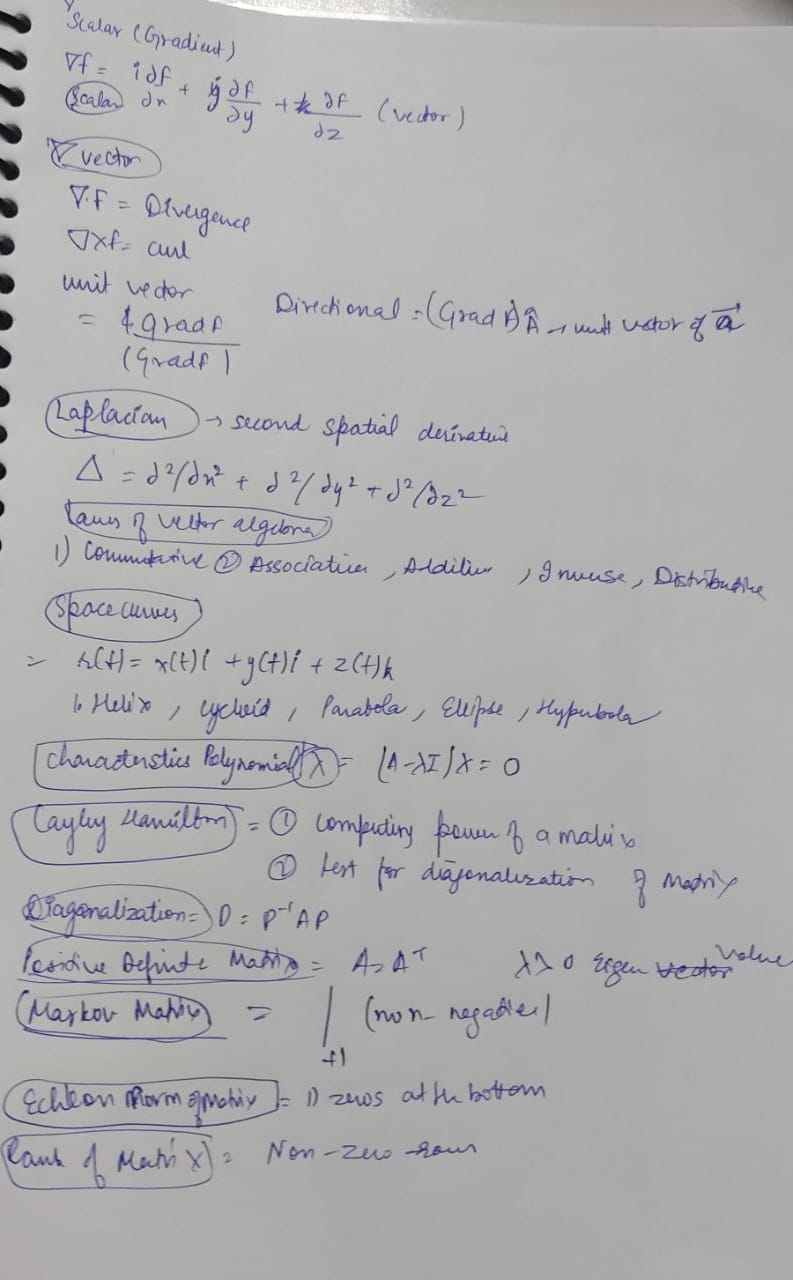 Scalar (Gradient)
∇f = i ∂f/∂x + j ∂f/∂y + k ∂f/∂z (vector)
(Scalar)
∇ vector
∇.F = Divergence
∇xf = curl
unit vector
= grad f / |grad f|
Directional = (Grad f) Â → unit vector of a⃗
Laplacian → second spatial derivative
Δ = ∂²/∂x² + ∂²/∂y² + ∂²/∂z²
Laws of vector algebra
1) Commutative ② Associative, Additive, Inverse, Distributive
Space curves
= r(t) = x(t)i + y(t)i + z(t)k
Helix, cycloid, Parabola, Ellipse, Hyperbola
Characterstics Polynomial (X) = |A-λI|X = 0
Cayley Hamilton = ① Computing power of a matrix
② test for diagonalization of Matrix
Diagonalization = D = P⁻¹AP
Positive Definite Matrix = A = Aᵀ λ>0 Eigen value
Markov Matrix = (non-negative)
+1
Echleon Form of matrix = 1) zeros at the bottom
Rank of Matrix = Non-zero rows